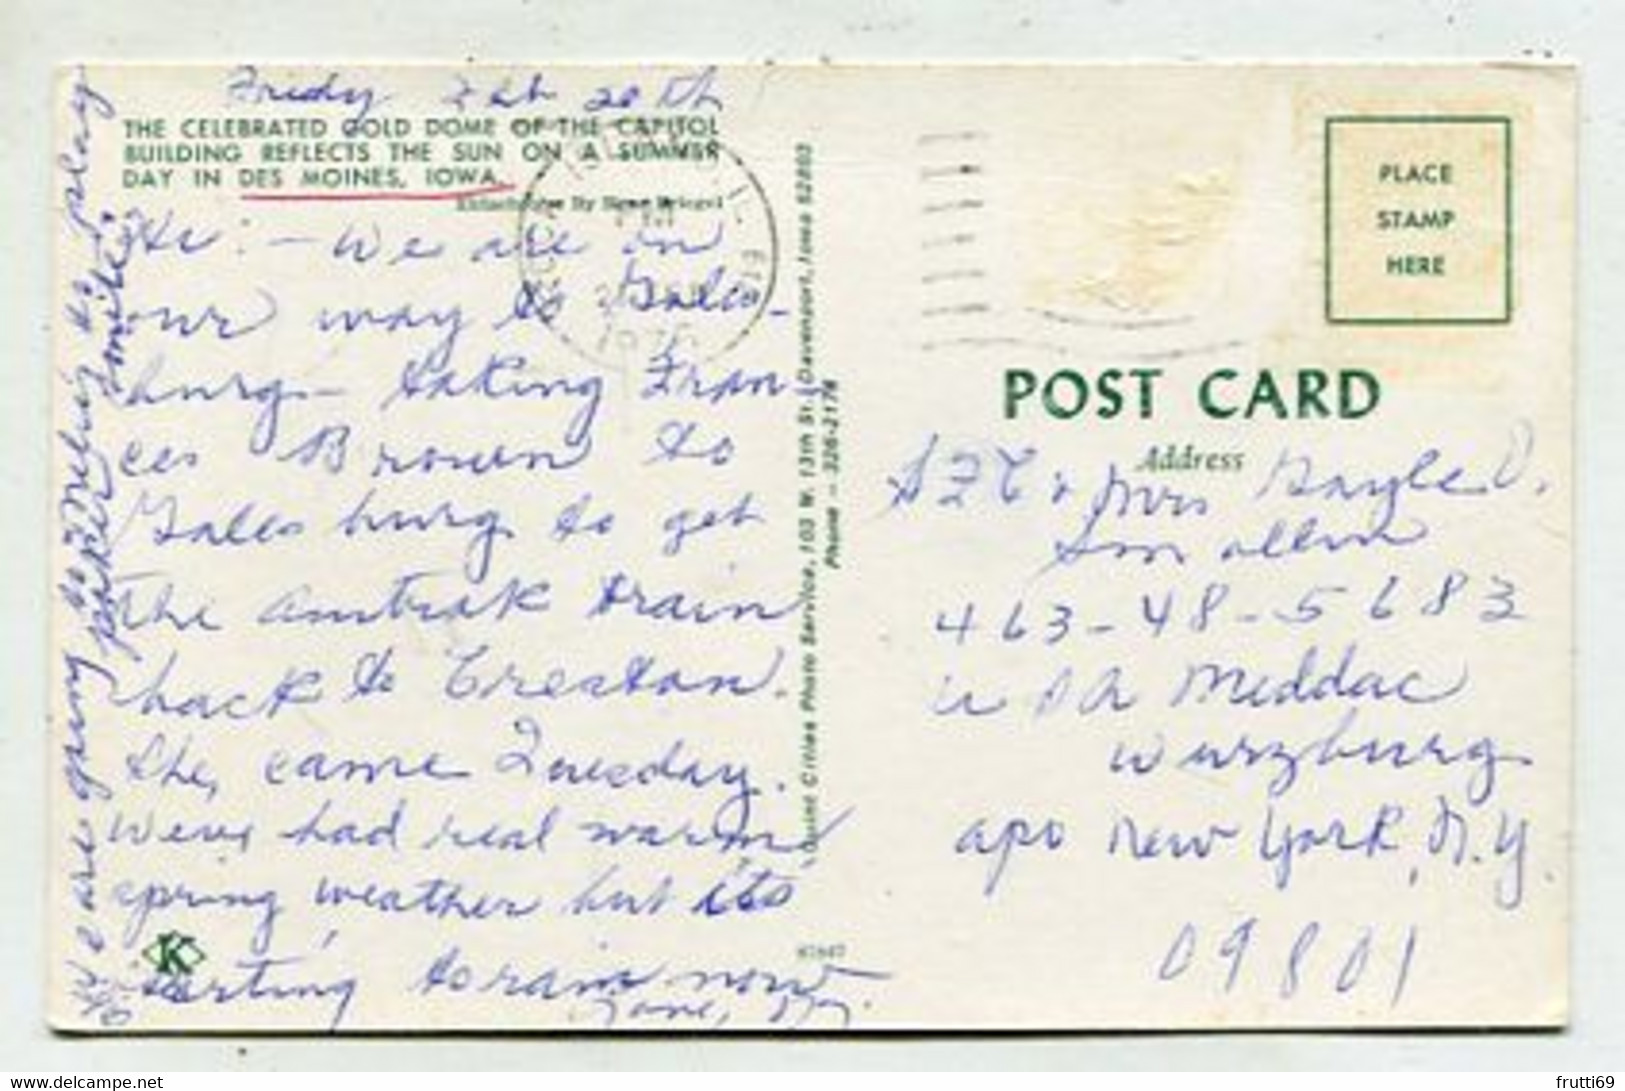 Fridy Feb 20th
THE CELEBRATED GOLD DOME OF THE CAPITOL
BUILDING REFLECTS THE SUN ON A SUMMER
DAY IN DES MOINES, IOWA.
Ektachrome By
Hi: - We are on
our way to Gales-
burg - taking Fran-
ces Brown to
Galesburg to get
the amtrak train
back to Creston.
She, came Tuesday.
Weve had real warm
spring weather but its
starting to rain now
Love,
We are going to Melvin to play
poker tonite.
Quint Cities Photo Service, 103 W. 13th St., Davenport, Iowa 52803
Phone — 326-2174
1976
PLACE
STAMP
HERE
POST CARD
Address
SFC & Mrs Gayle D.
Smollen
463-48-5683
USA Meddac
Wurzburg
apo New York, N.Y.
09801
K
frutti69
www.delcampe.net